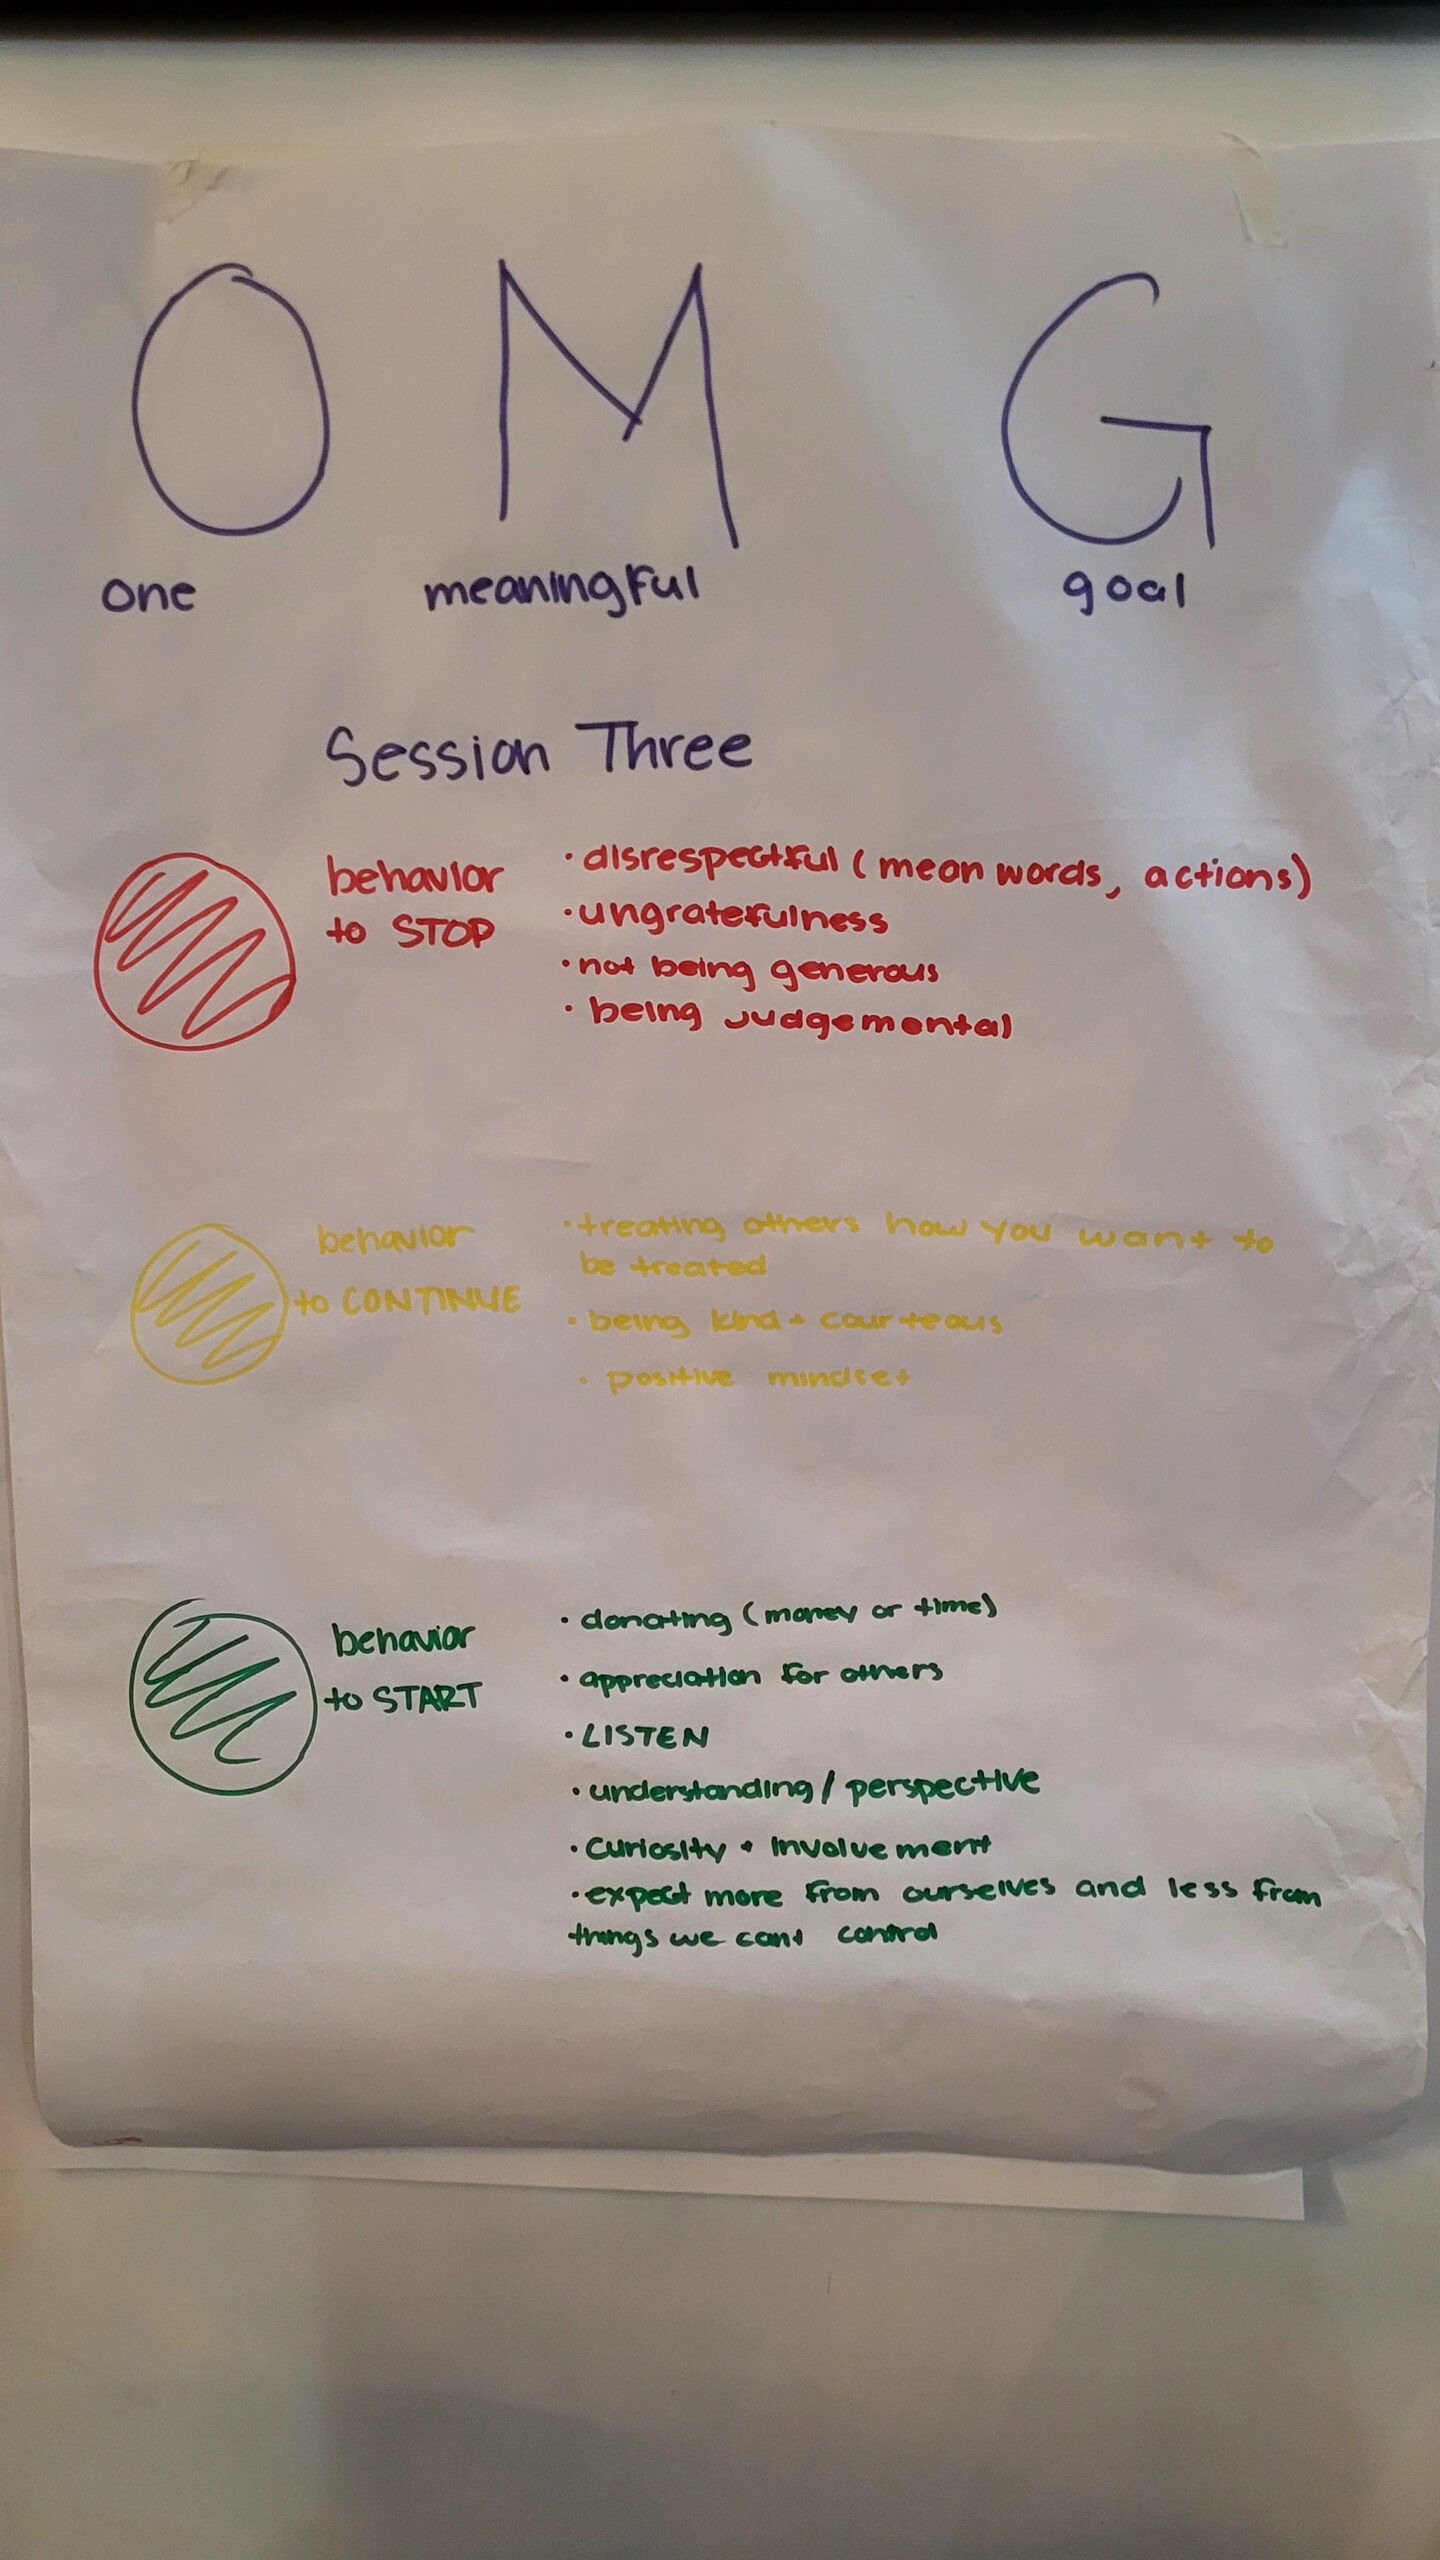 O M G
one meaningful goal
Session Three
behavior
to STOP
· disrespectful (mean words, actions)
· ungratefulness
· not being generous
· being judgemental
behavior
to CONTINUE
· treating others how you want to
be treated
· being kind + courteous
· positive mindset
behavior
to START
· donating (money or time)
· appreciation for others
· LISTEN
· understanding / perspective
· curiosity + involvement
· expect more from ourselves and less from
things we cant control